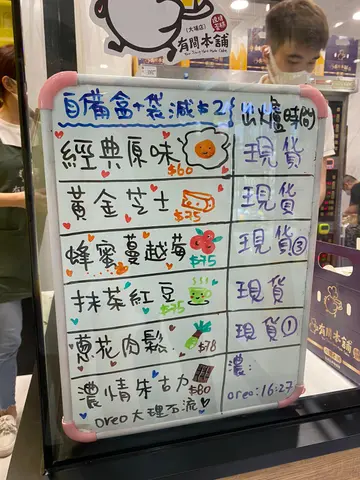 (大埔店)
有間本舖
自備盒+袋減$2 出爐時間
經典原味 $60 現貨
黃金芝士 $75 現貨
蜂蜜蔓越莓 $75 現貨③
抹茶紅豆 $75 現貨
蔥花肉鬆 $78 現貨①
濃情朱古力 $80 濃:
oreo大理石流心 oreo:16:27
有間本舖